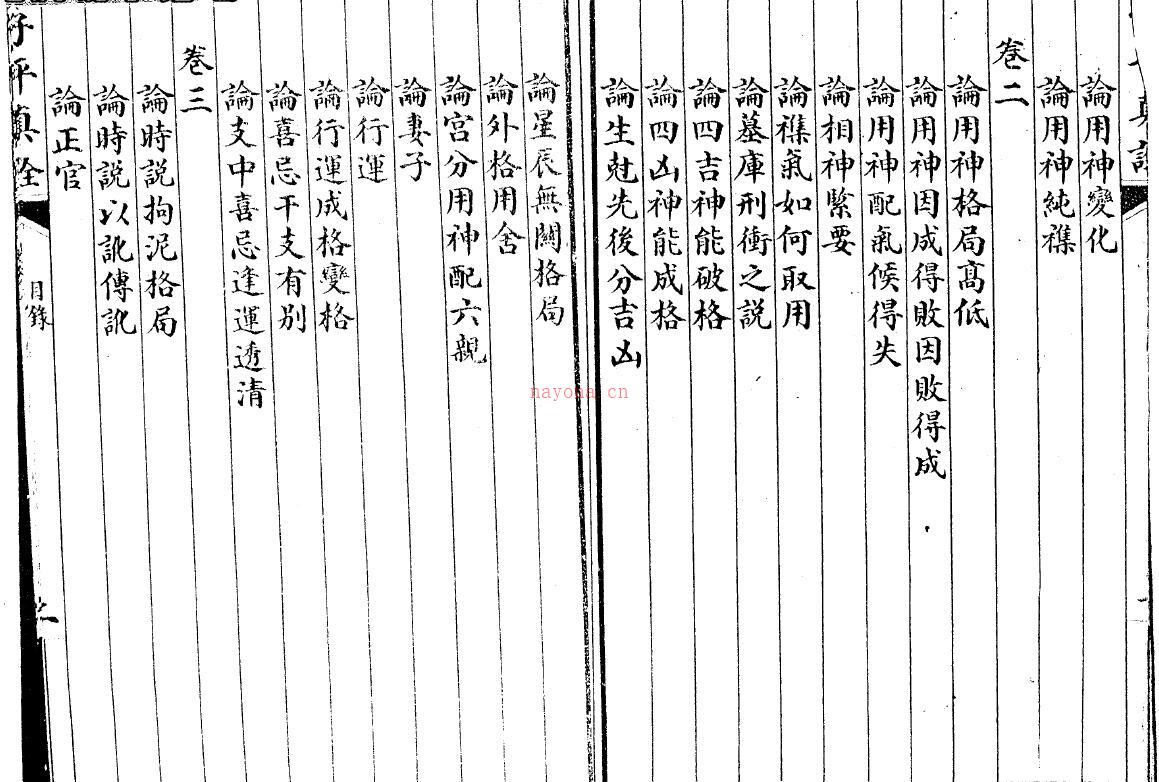 真詮
論用神變化
論用神純襍
卷二
論用神格局髙低
論用神因成得敗因敗得成
論用神配氣候得失
論相神緊要
論襍氣如何取用
論墓庫刑衝之説
論四吉神能破格
論四凶神能成格
論生尅先後分吉凶
論星辰無關格局
論外格用舍
論宫分用神配六親
論妻子
論行運
論行運成格變格
論喜忌干支有别
論支中喜忌逢運透清
卷三
論時説拘泥格局
論時説以訛傳訛
論正官
子平真詮
目錄
nayona.cn